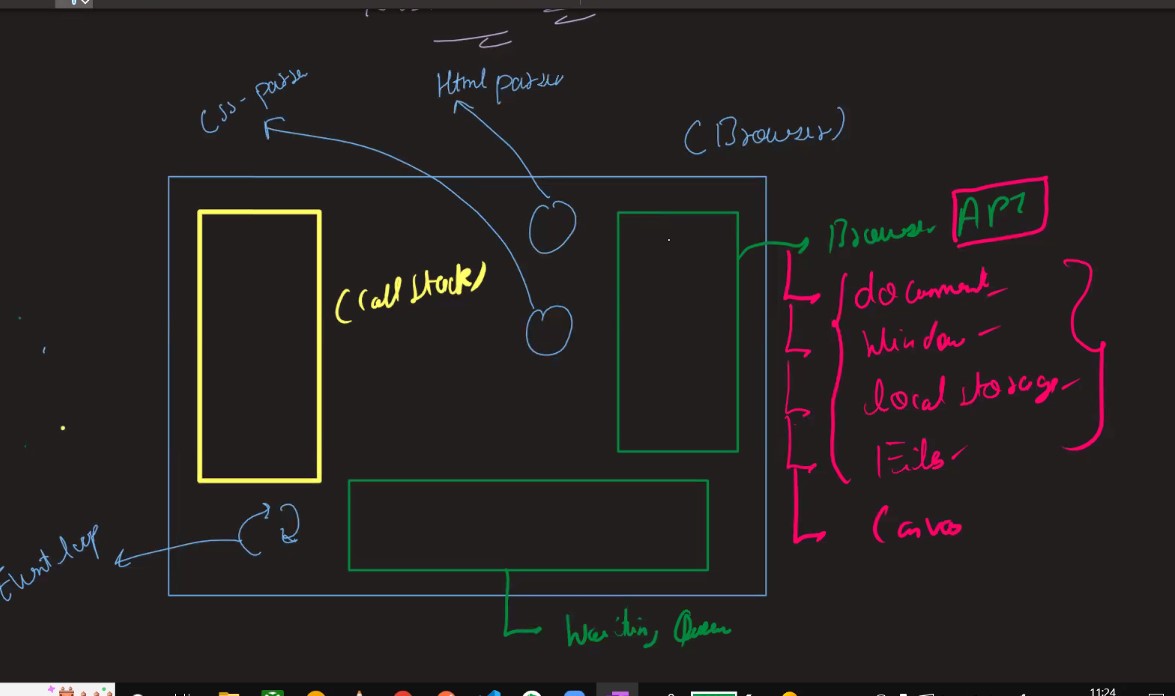 Css-parse
Html parser
(Browser)
Browser API
(Call Stack)
document
Window
local storage
File
Canvas
Event loop
Waiting Queue
11:24